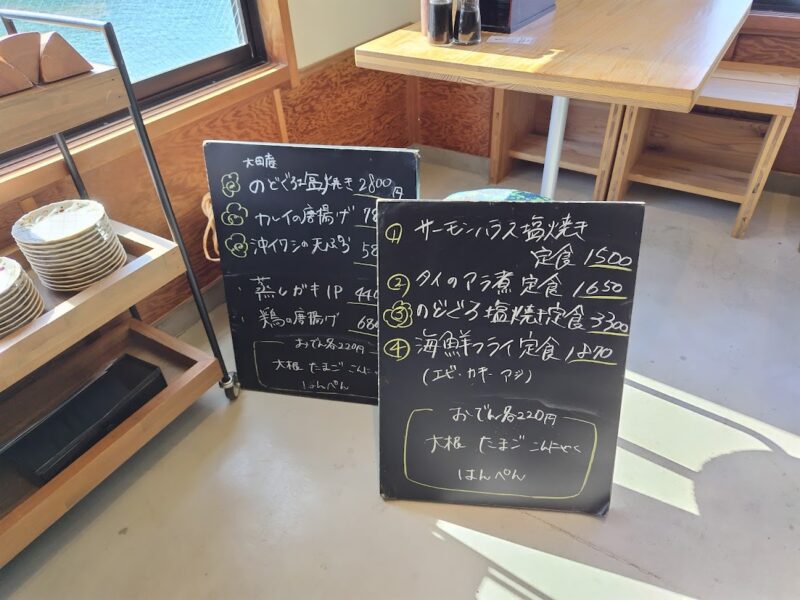 大田産
のどぐろ塩焼き 2800円
カレイの唐揚げ
沖イワシの天ぷら
蒸しガキ1P
鶏の唐揚げ
おでん各220円
大根 たまご こんに
はんぺん
① サーモンハラス塩焼き
定食 1500
② タイのアラ煮定食 1650
③ のどぐろ塩焼き定食 3300
④ 海鮮フライ定食 1870
(エビ・カキ・アジ)
おでん各220円
大根 たまご こんにゃく
はんぺん